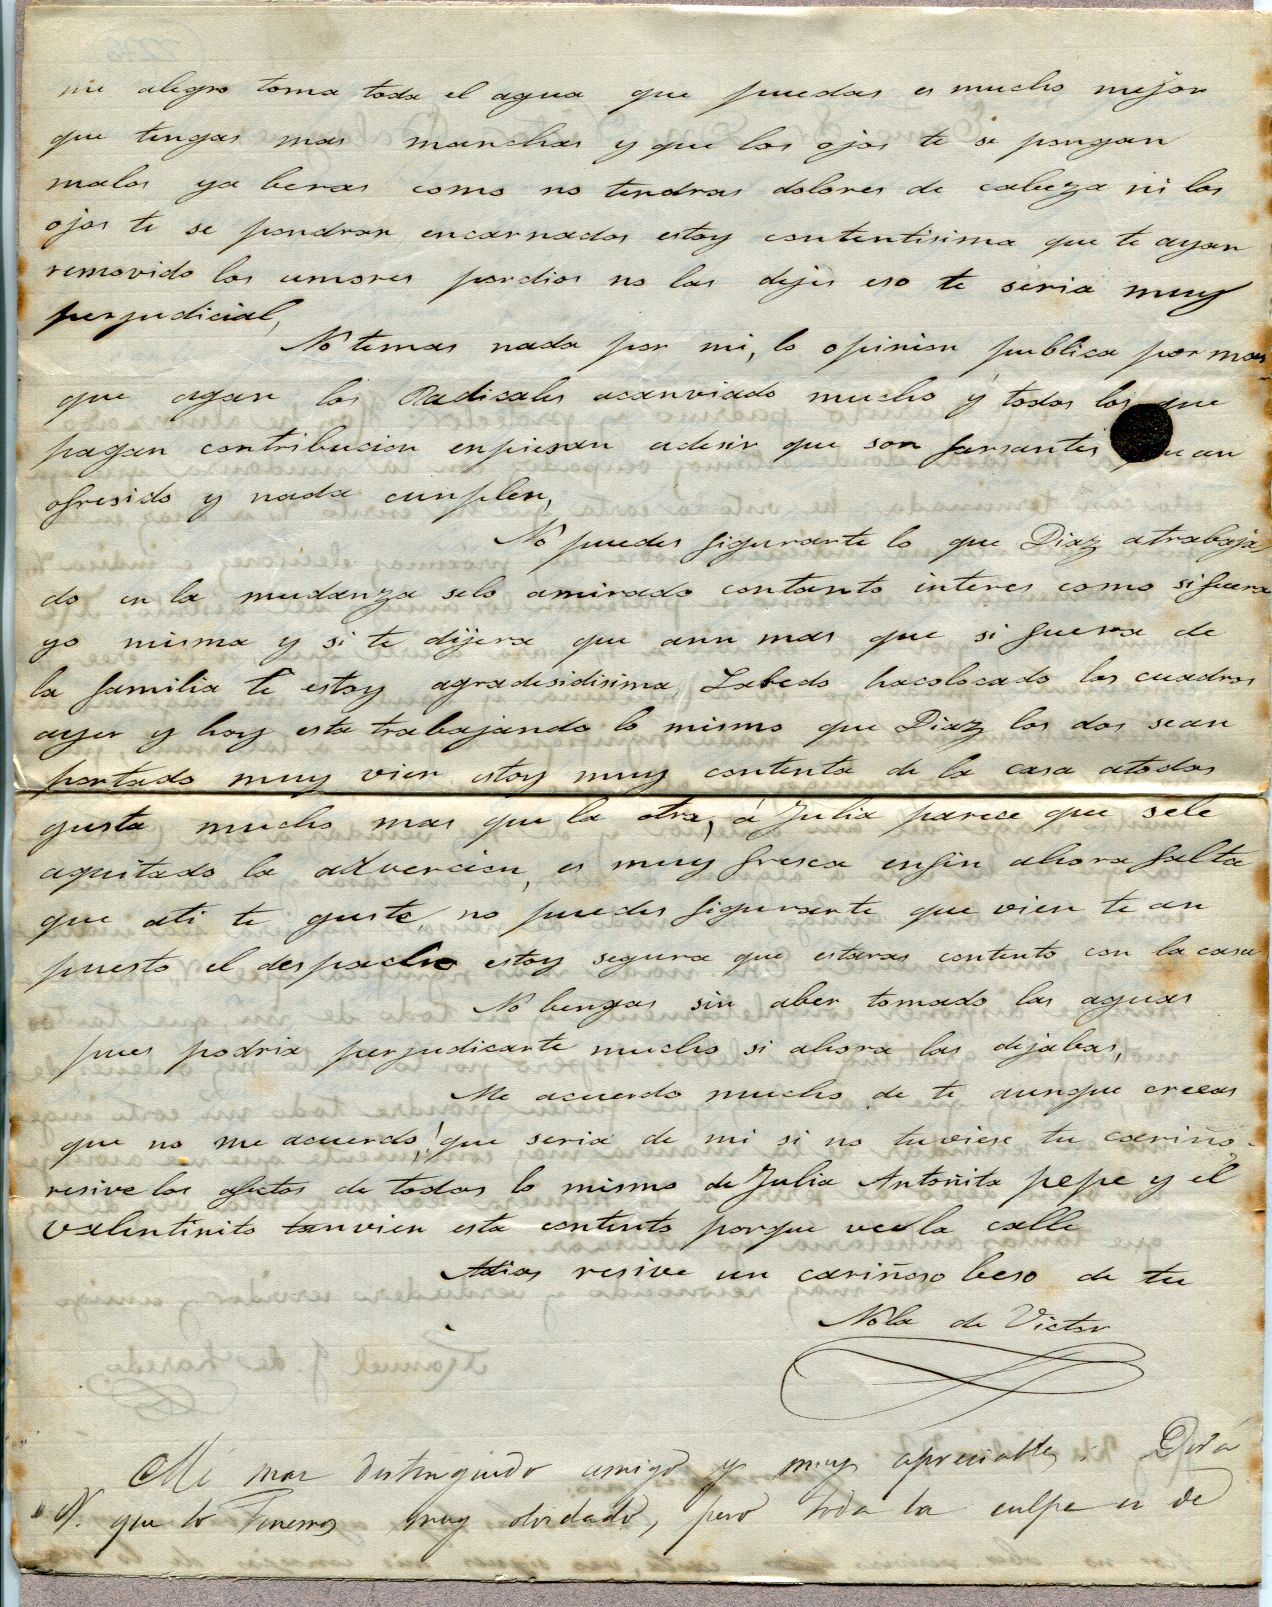 me alegro toma toda el agua que puedas es mucho mejor
que tengas mas manchas y que los ojos te se pongan
malos ya beras como no tendras dolores de cabeza ni los
ojos te se pondran encarnados estoy contentisima que te ayan
removido los umores pordios no las dejes eso te seria muy
perjudicial,
No temas nada por mi, la opinion publica por mas
que agan los Radicales acanviado mucho y todos los que
pagan contribucion enpiesan adesir que son farsantes an
ofresido y nada cunplen,
No puedes figurarte lo que Diaz atrabaja
do en la mudanza selo amirado contanto interes como si fuera
yo misma y si te dijera que aun mas que si fuera de
la familia le estoy agradesidisima, Labedo hacolocado los cuadros
ayer y hoy esta trabajando lo mismo que Diaz los dos sean
portado muy vien estoy muy contenta de la casa atodos
gusta mucho mas que la otra, á Julia parece que sele
aquitado la adversion, es muy fresca enfin ahora falta
que ati te guste, no puedes figurarte que vien te an
puesto el despacho estoy segura que estaras contento con la casa
No bengas sin aber tomado las aguas
pues podria perjudicarte mucho si ahora las dejabas,
Me acuerdo mucho de te aunque creeas
que no me acuerdo, ¡que seria de mi si no tuviese tu cariño.
resive los afectos de todos lo mismo de Julia Antoñita pepe y el
valentinito tanvien esta contento porque vee la calle
Adios resive un cariñoso beso de tu
Nola de Victor
Mi mas distinguido amigo y muy apreciable: Dirá
V. que lo tenemos muy olvidado, pero toda la culpa es de